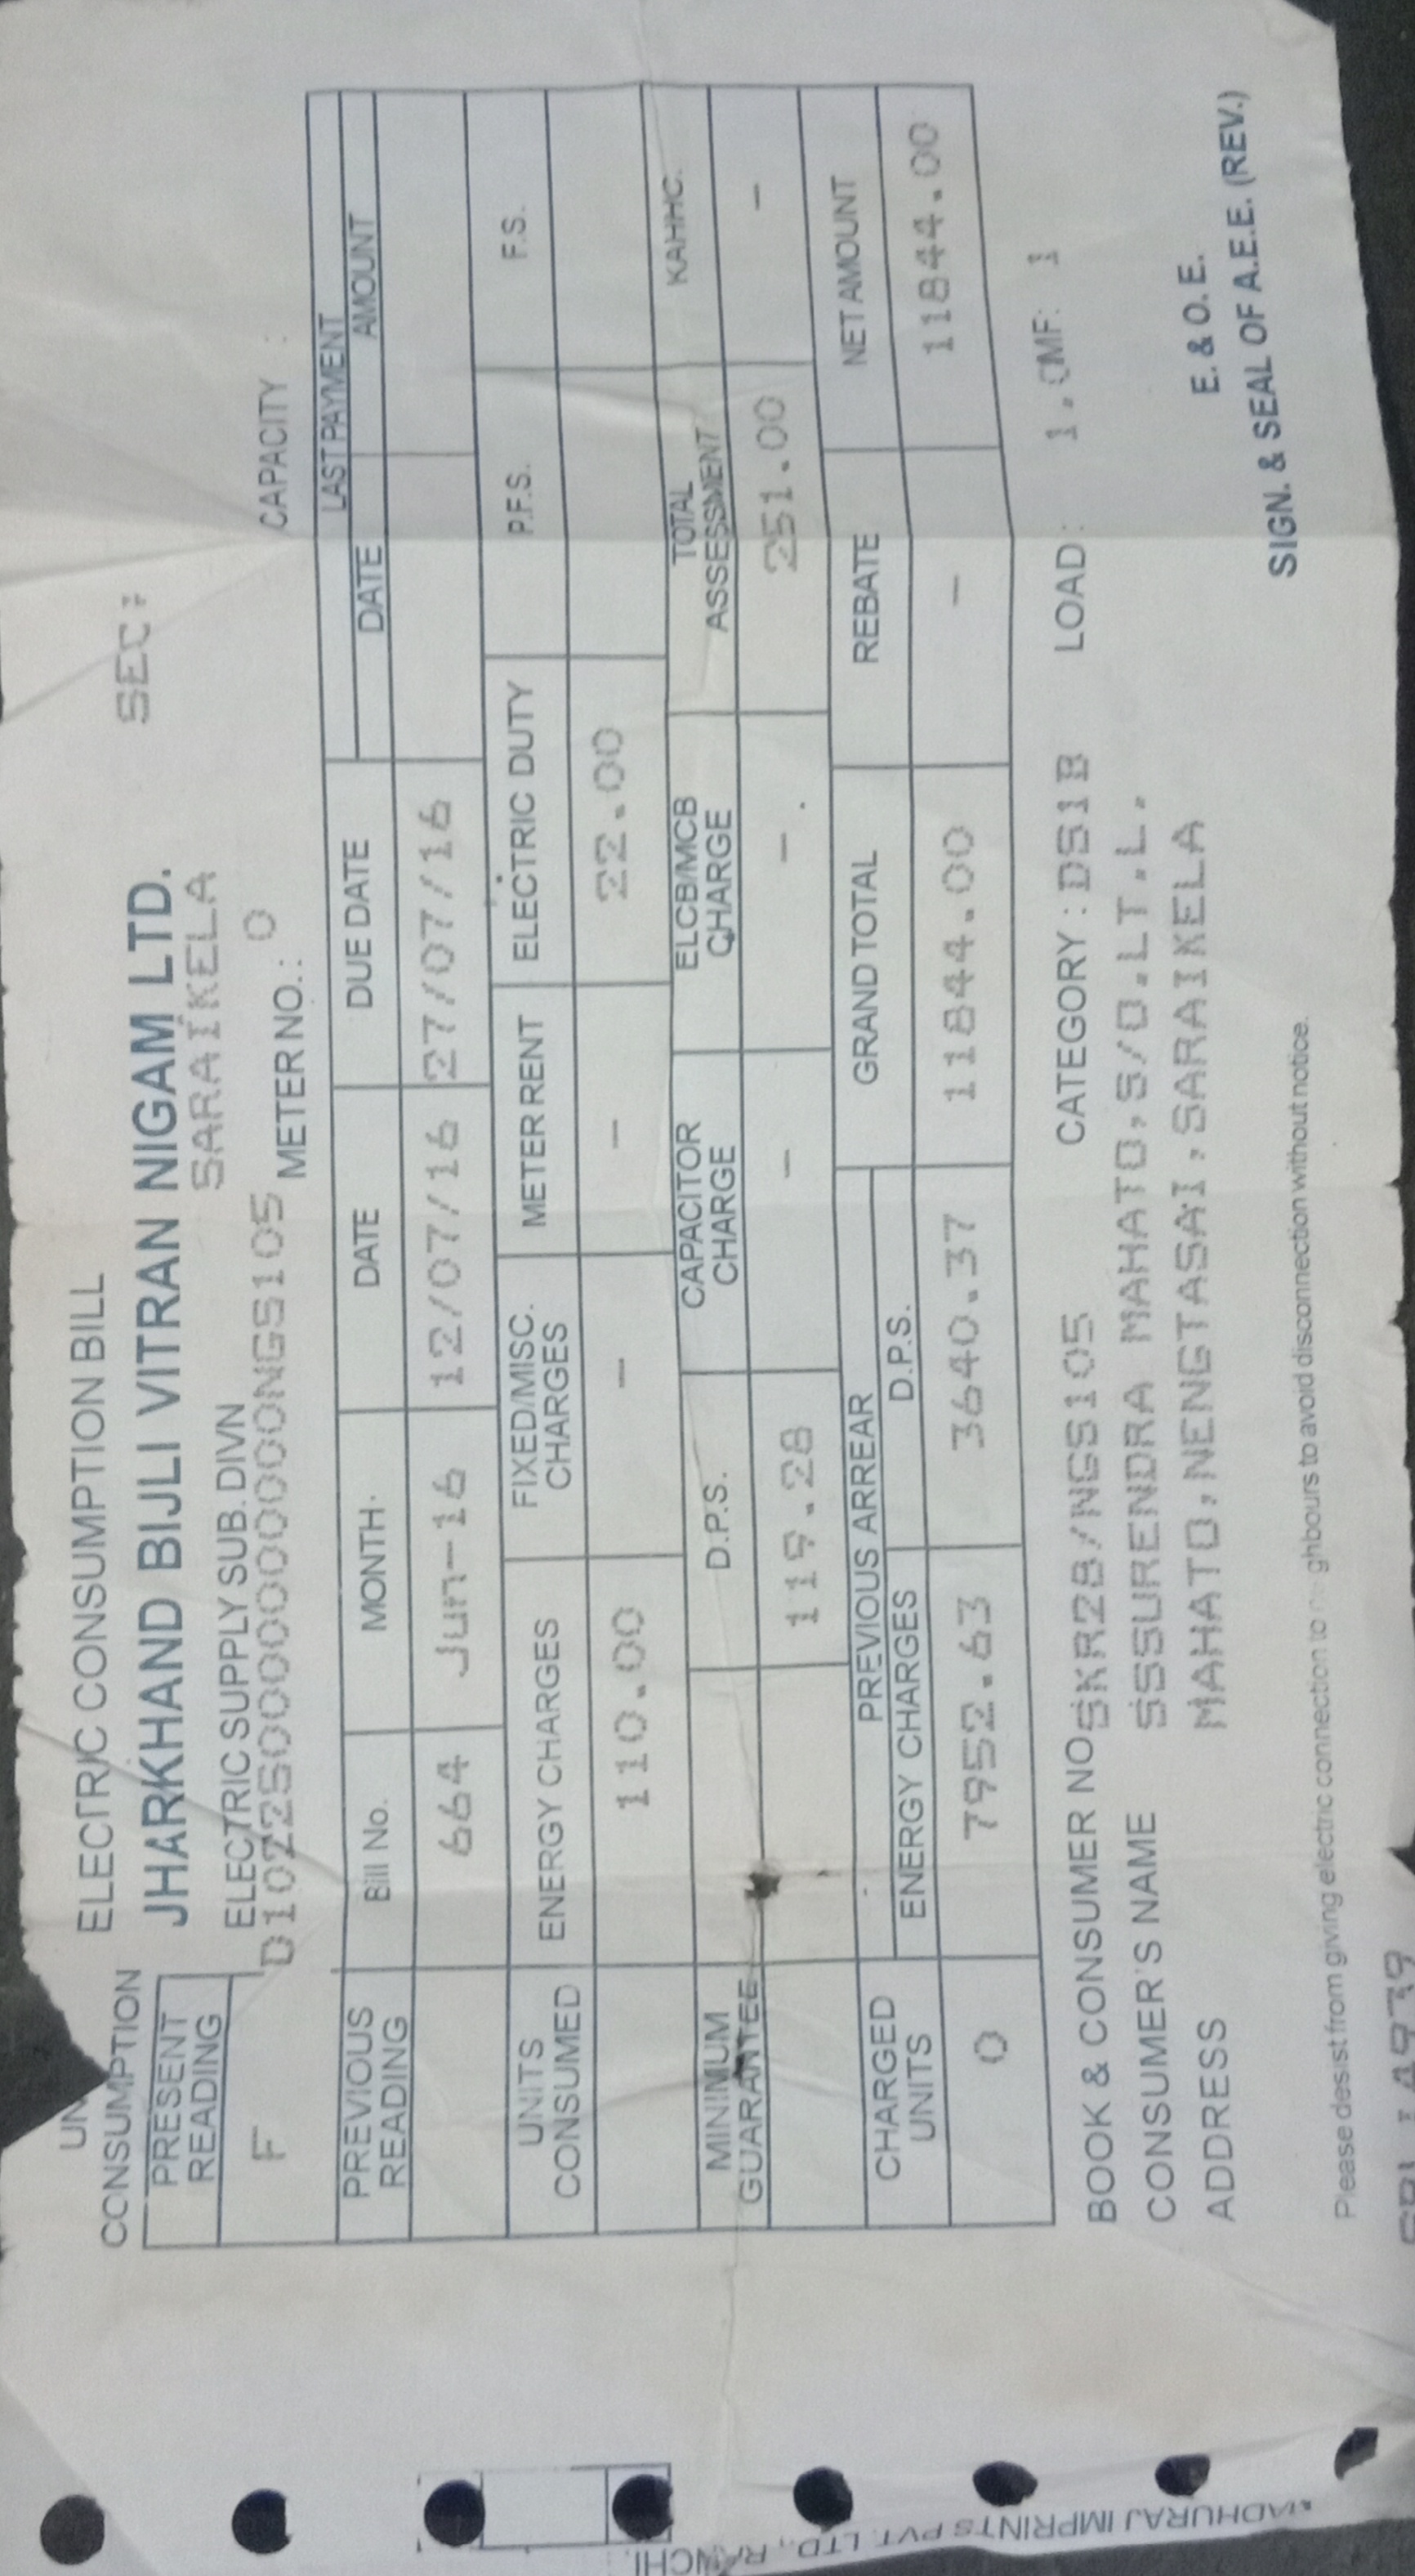 ELECTRIC CONSUMPTION BILL
CONSUMPTION
JHARKHAND BIJLI VITRAN NIGAM LTD. SEC:
PRESENT READING
ELECTRIC SUPPLY SUB. DIVN SARAIKELA
F D10225000000000NGS105 METER NO.: 0 CAPACITY :
PREVIOUS READING Bill No. MONTH DATE DUE DATE LAST PAYMENT
DATE AMOUNT
664 Jun-16 12/07/16 27/07/16
UNITS CONSUMED ENERGY CHARGES FIXED/MISC. CHARGES METER RENT ELECTRIC DUTY P.F.S. F.S.
110.00 - - 22.00
MINIMUM GUARANTEE D.P.S. CAPACITOR CHARGE ELCB/MCB CHARGE TOTAL ASSESSMENT KAHHC.
119.28 - - 251.00 -
CHARGED UNITS PREVIOUS ARREAR GRAND TOTAL REBATE NET AMOUNT
ENERGY CHARGES D.P.S.
0 7952.63 3640.37 11844.00 - 11844.00
BOOK & CONSUMER NO SKR28/NGS105 CATEGORY : DS1B LOAD : 1.0MF: 1
CONSUMER'S NAME SSSURENDRA MAHATO,S/O.LT.L.
ADDRESS MAHATO,NENGTASAI,SARAIKELA
E. & O. E.
SIGN. & SEAL OF A.E.E. (REV.)
Please desist from giving electric connection to neighbours to avoid disconnection without notice.
MADHURAJ IMPRINTS PVT. LTD., RANCHI.